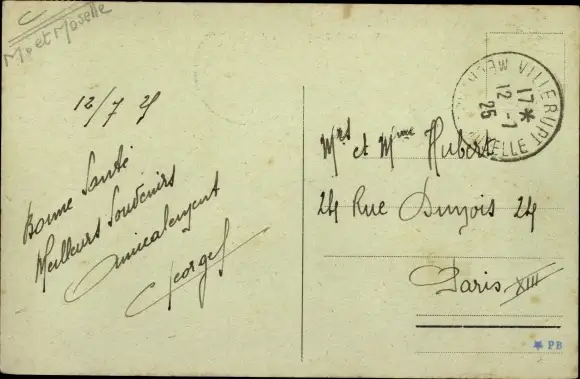 Mthe et Moselle
12/7 25
Bonne Santé
Meilleurs Souvenirs
Amicalement
Georges
VILLERUPT
17*
12-7
25
MOSELLE
Mrs et Mme Hubert
24 Rue Dunois 24
Paris XIII
PB